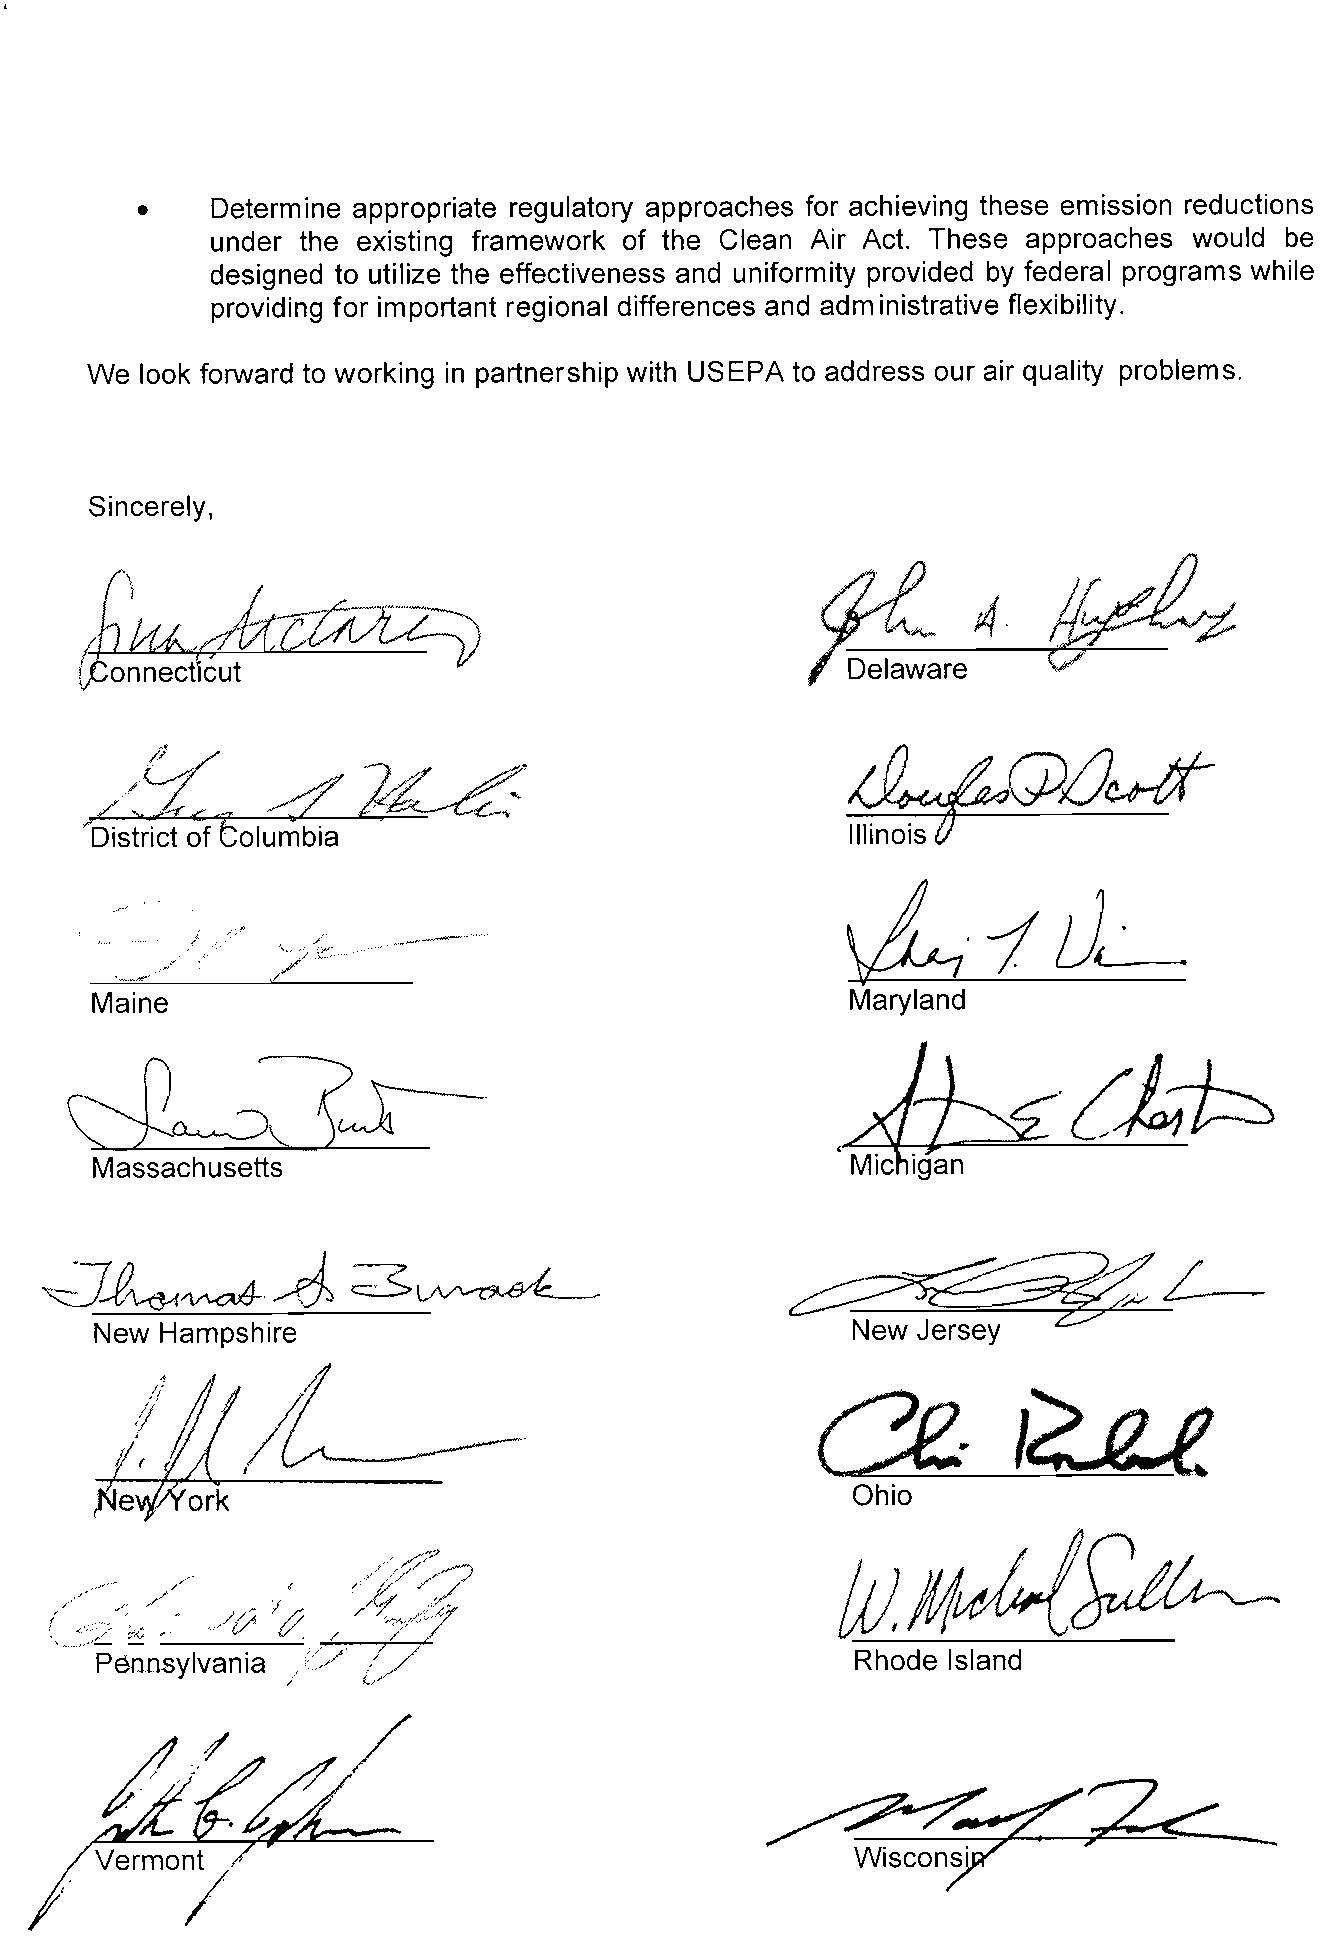 • Determine appropriate regulatory approaches for achieving these emission reductions
under the existing framework of the Clean Air Act. These approaches would be
designed to utilize the effectiveness and uniformity provided by federal programs while
providing for important regional differences and administrative flexibility.
We look forward to working in partnership with USEPA to address our air quality problems.
Sincerely,
John A. Hughes
Connecticut
Delaware
Douglas P Scott
District of Columbia
Illinois
Maine
Maryland
Massachusetts
Michigan
Thomas S Burack
New Hampshire
New Jersey
New York
Ohio
W. Michael Sullivan
Pennsylvania
Rhode Island
Vermont
Wisconsin